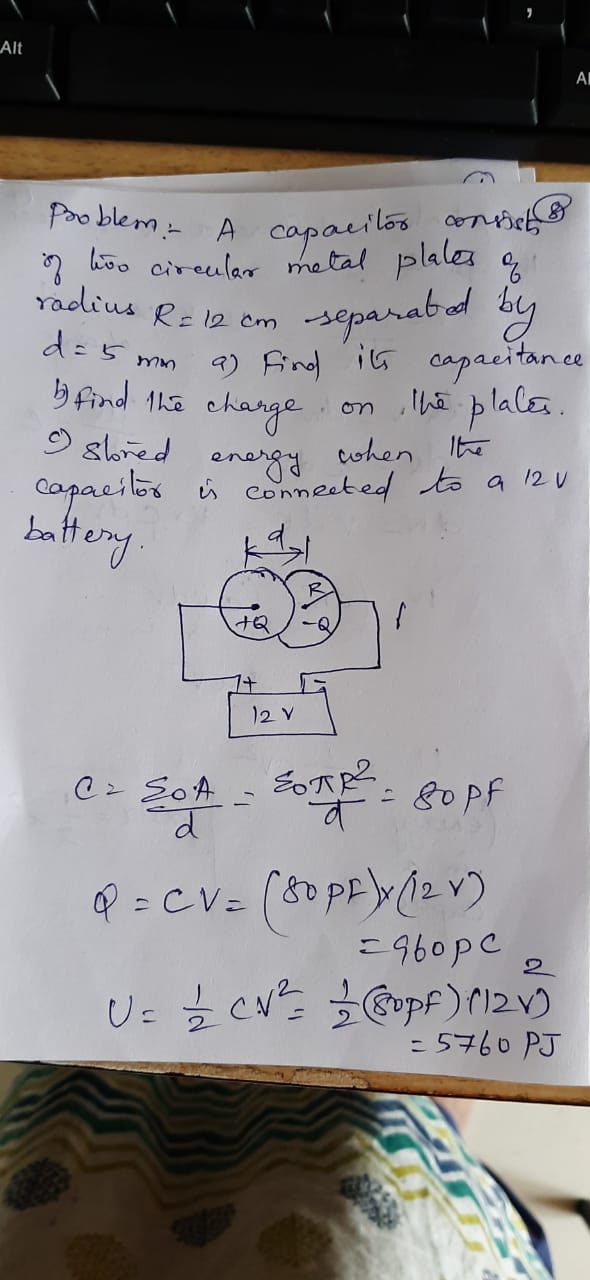 Alt
,
Al
8
Problem:- A capacitor consists
of two circular metal plates of
radius R = 12 cm separated by
d = 5 mm a) Find its capacitance
b) find the charge on the plates.
c) stored energy when the
capacitor is connected to a 12 V
battery.
d
R
+Q -Q
+ -
12 V
C = Σ0A/d = Σ0πR²/d = 80 pF
Q = CV = (80 pF)x(12 V)
= 960 pC
U = 1/2 CV² = 1/2 (80pF) (12V)²
= 5760 PJ